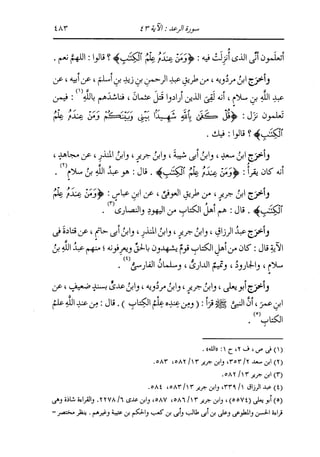 سورة الرعد : الآية ٤٣
٤٨٣
أتعلمون أنى الذى أُنزِلت فيه : ﴿وَمَنْ عِندَهُ عِلْمُ الْكِتَبِ﴾ ؟ قالوا : اللهم نعم .
وأخرَج ابنُ مردُويَه ، من طريقِ عبدِ الرحمنِ بنِ زيدِ بنِ أسلمَ ، عن أبيه ، عن
عبدِ اللَّهِ بنِ سلامٍ ، أنه لقِىَ الذين أرادوا قتلَ عثمانَ ، فناشَدهم باللَّهِ (١) : فيمن
تعلمون نزَل : ﴿قُلْ كَفَىٰ بِاللَّهِ شَهِيدًا بَيْنِى وَبَيْنَكُمْ وَمَنْ عِندَهُ عِلْمُ
الْكِتَبِ﴾ ؟ قالوا : فيك .
وأخرَج ابنُ سعدٍ ، وابنُ أبى شيبةَ ، وابنُ جريرٍ ، وابنُ المنذرِ ، عن مجاهدٍ ،
أنه كان يقرأُ : ﴿وَمَنْ عِندَهُ عِلْمُ الْكِتَبِ﴾ . قال : هو عبدُ اللَّهِ بنُ سلامٍ (٢) .
وأخرَج ابنُ جريرٍ ، من طريقِ العوفىِّ ، عن ابنِ عباسٍ : ﴿وَمَنْ عِندَهُ عِلْمُ
الْكِتَبِ﴾ . قال : هم أهلُ الكتابِ من اليهودِ والنصارى (٣) .
وأخرَج عبدُ الرزاقِ ، وابنُ جريرٍ ، وابنُ المنذرِ ، وابنُ أبى حاتمٍ ، عن قتادةَ فى
الآيةِ قال : كان من أهلِ الكتابِ قومٌ يشهدون بالحقِّ ويعرفونه ، منهم عبدُ اللَّهِ بنُ
سلامٍ ، والجارودُ ، وتميمٌ الدارىُّ ، وسلمانُ الفارسىُّ (٤) .
وأخرَج أبو يعلى ، وابنُ جريرٍ ، وابنُ مردُويَه ، وابنُ عدىٍّ بسندٍ ضعيفٍ ، عن
ابنِ عمرَ ، أن النبىَّ ﷺ قرَأ : ( ومِن عندِه عِلْمُ الكتابِ ) . قال : مِن عندِ اللَّهِ علمُ
الكتابِ (٥) .
(١) فى ص ، ف ٢ ، ح ١ : « الله » .
(٢) ابن سعد ٢/ ٣٥٣، وابن جرير ١٣/ ٥٨٢، ٥٨٣ .
(٣) ابن جرير ١٣/ ٥٨٢ .
(٤) عبد الرزاق ١/ ٣٣٩، وابن جرير ١٣/ ٥٨٣، ٥٨٤ .
(٥) أبو يعلى (٥٥٧٤) ، وابن جرير ١٣/ ٥٨٦، ٥٨٧، وابن عدى ٦/ ٢٢٧٨ . والقراءة شاذة وهى
قراءة الحسن والمطوعى وعلى بن أبى طالب وأبى بن كعب والحكم بن عتيبة وغيرهم . ينظر مختصر =